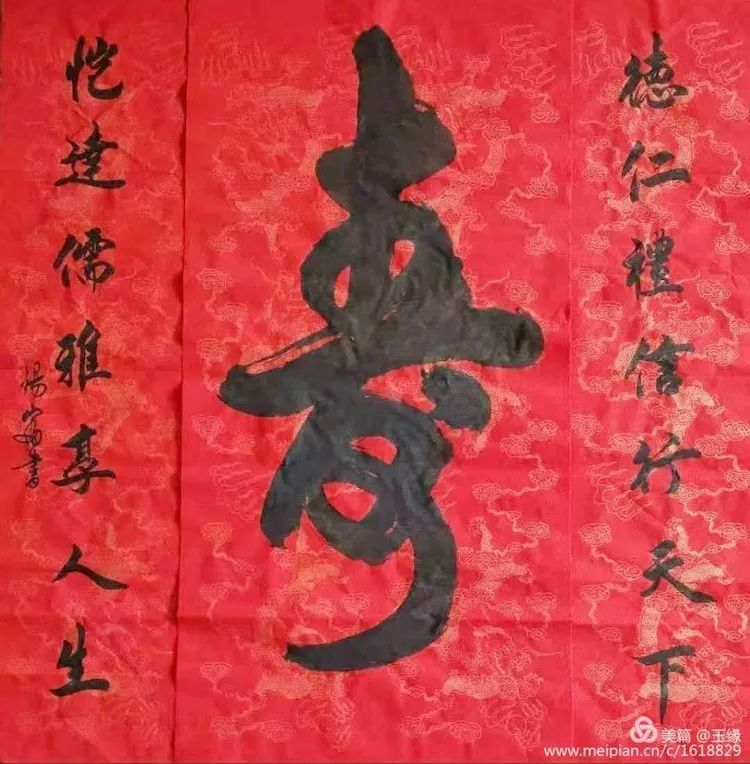 德仁禮信行天下
壽
恺達儒雅享人生
美篇 @玉缘
www.meipian.cn/c/1618829